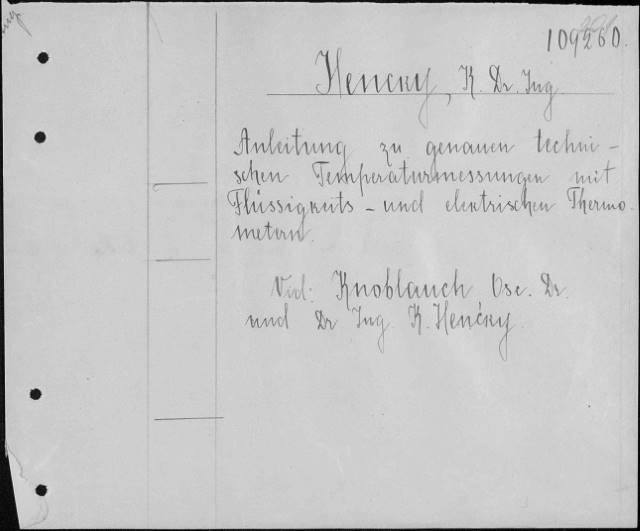 109260.
Hencky, K. Dr. Ing
Anleitung zu genauen techni-
schen Temperaturmessungen mit
Flüssigkeits- und elektrischen Thermo-
metern.
Vid: Knoblauch Osc. Dr.
und Dr Ing K. Henćky